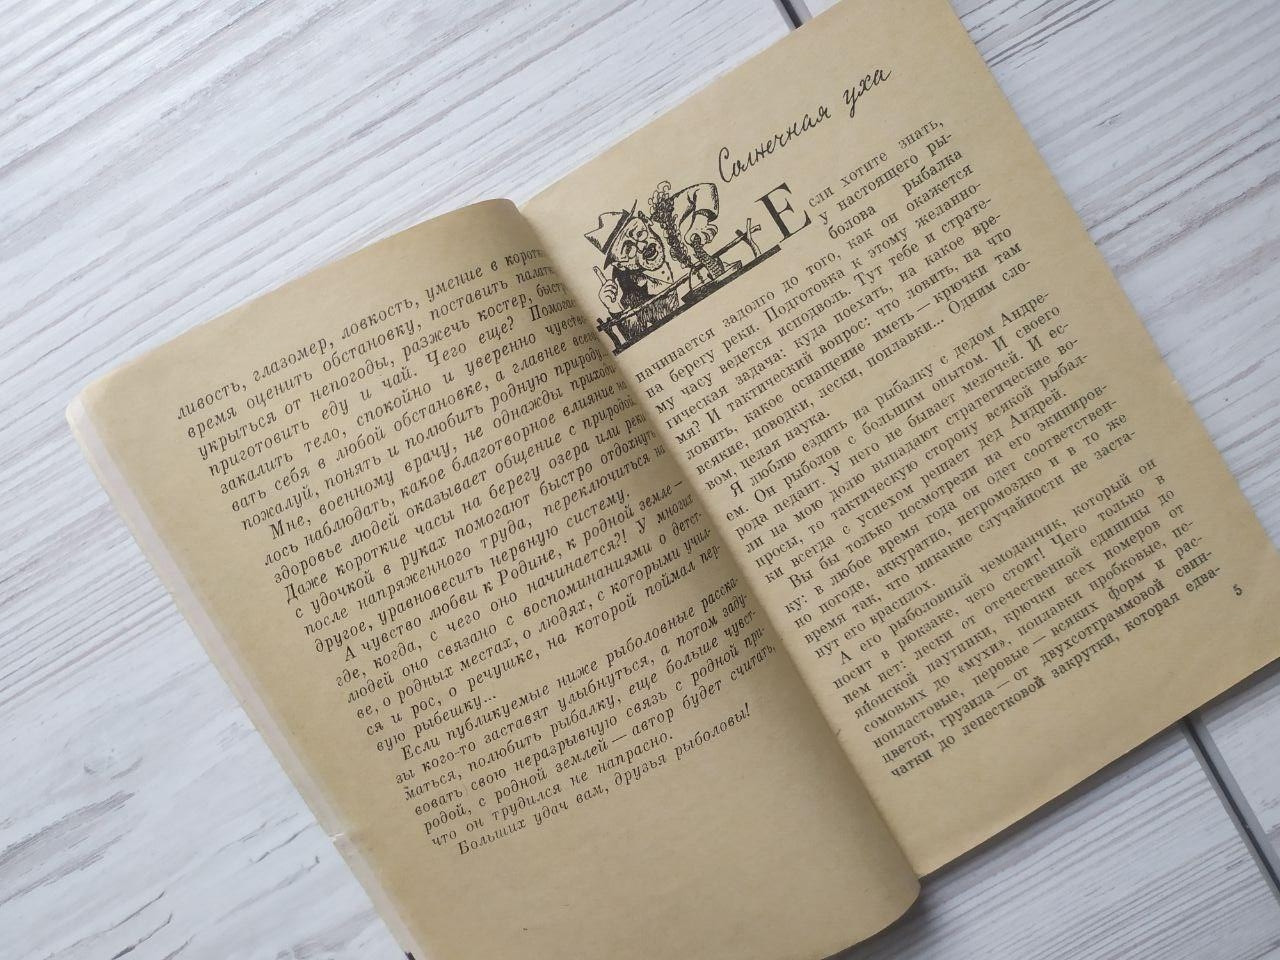 ливость, глазомер, ловкость, умение в коротк
время оценить обстановку, поставить палатк
укрыться от непогоды, разжечь костер, быст
приготовить еду и чай. Чего еще? Помогае
закалить тело, спокойно и уверенно чувство-
вать себя в любой обстановке, а главнее всего,
пожалуй, понять и полюбить родную природу...
Мне, военному врачу, не однажды приходи-
лось наблюдать, какое благотворное влияние на
здоровье людей оказывает общение с природой.
Даже короткие часы на берегу озера или реки
с удочкой в руках помогают быстро отдохнуть
после напряженного труда, переключиться на
другое, уравновесить нервную систему.
А чувство любви к Родине, к родной земле —
где, когда, с чего оно начинается?! У многих
людей оно связано с воспоминаниями о детст-
ве, о родных местах, о людях, с которыми учил-
ся и рос, о речушке, на которой поймал пер-
вую рыбешку...
Если публикуемые ниже рыболовные расска-
зы кого-то заставят улыбнуться, а потом заду-
маться, полюбить рыбалку, еще больше чувст-
вовать свою неразрывную связь с родной при-
родой, с родной землей — автор будет считать,
что он трудился не напрасно.
Больших удач вам, друзья рыболовы!
Солнечная уха
Если хотите знать,
у настоящего ры-
болова рыбалка
начинается задолго до того, как он окажется
на берегу реки. Подготовка к этому желанно-
му часу ведется исподволь. Тут тебе и страте-
гическая задача: куда поехать, на какое вре-
мя? И тактический вопрос: что ловить, на что
ловить, какое оснащение иметь — крючки там
всякие, поводки, лески, поплавки... Одним сло-
вом, целая наука.
Я люблю ездить на рыбалку с дедом Андре-
ем. Он рыболов с большим опытом. И своего
рода педант. У него не бывает мелочей. И ес-
ли на мою долю выпадают стратегические во-
просы, то тактическую сторону всякой рыбал-
ки всегда с успехом решает дед Андрей.
Вы бы только посмотрели на его экипиров-
ку: в любое время года он одет соответствен-
но погоде, аккуратно, негромоздко и в то же
время так, что никакие случайности не заста-
нут его врасплох.
А его рыболовный чемоданчик, который он
носит в рюкзаке, чего стоит! Чего только в
нем нет: лески от отечественной единицы до
японской паутинки, крючки всех номеров от
сомовьих до «мухи», поплавки пробковые, пе-
нопластовые, перовые — всяких форм и рас-
цветок, грузила — от двухсотграммовой свин-
чатки до лепестковой закрутки, которая едва-
5